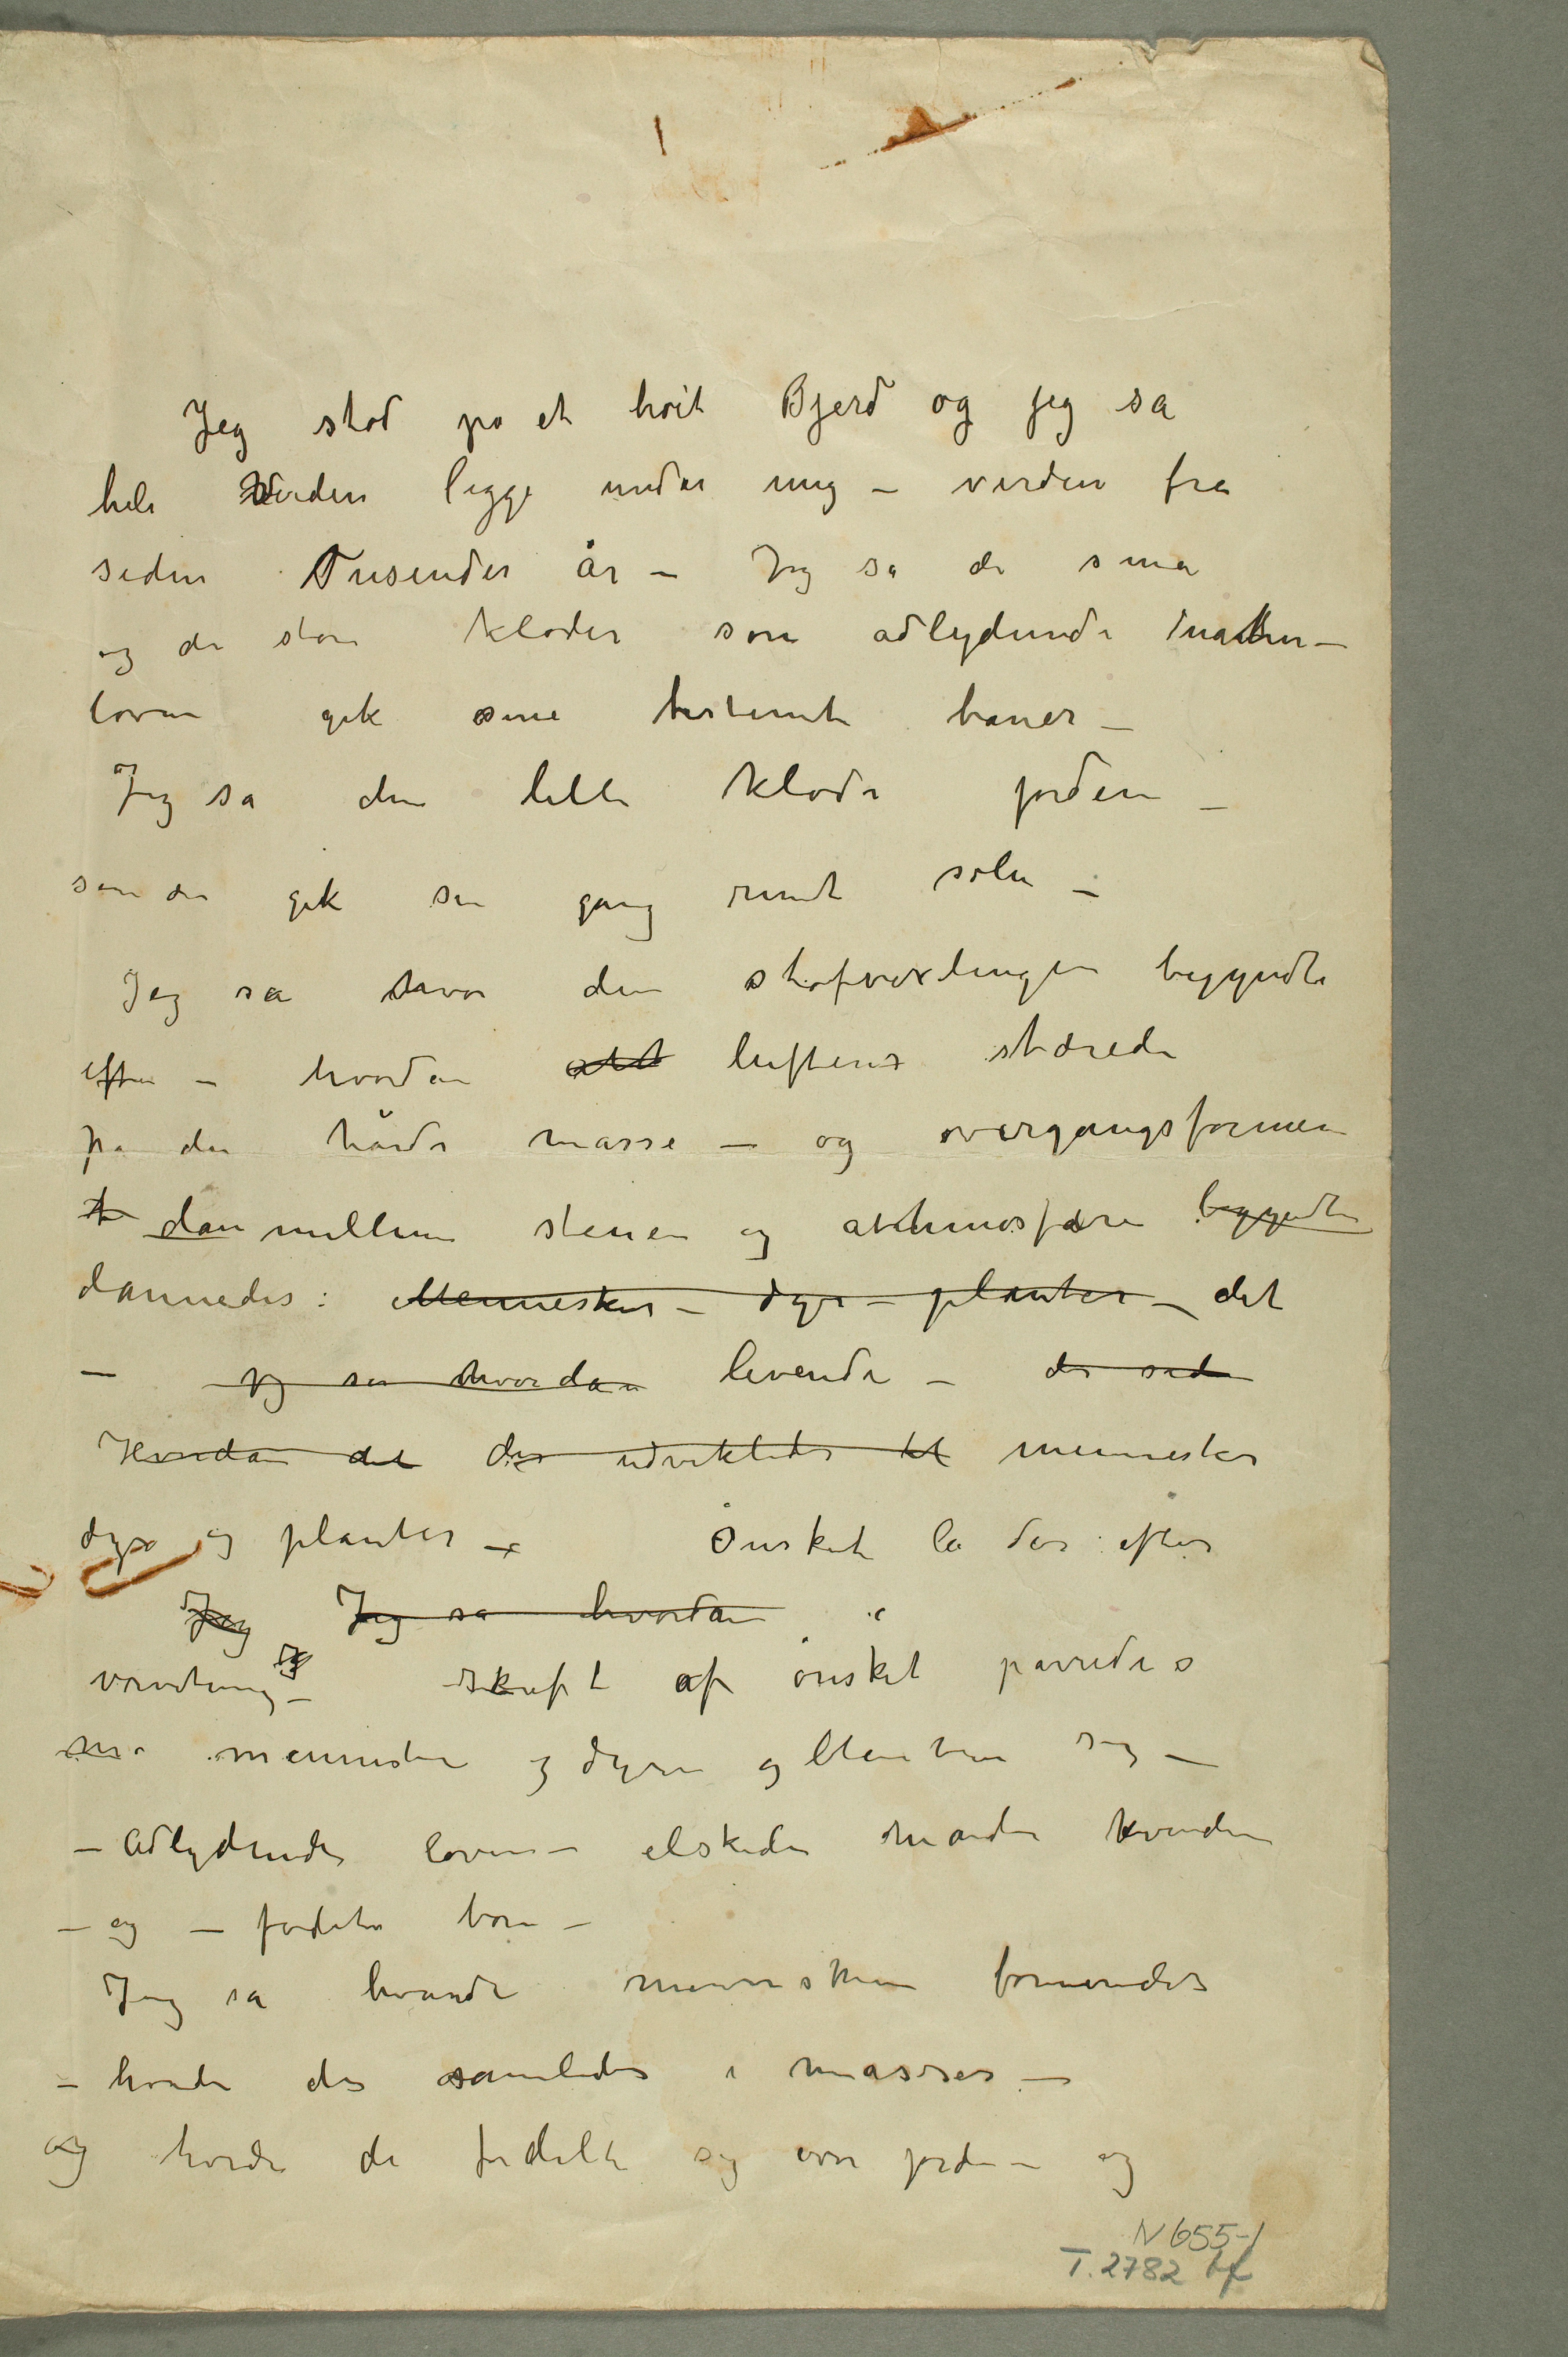 Jeg stod på et høit Bjerd og jeg så
hele Verden ligge under mig – verden fra
siden Tusender år – Jeg så de små
og de store kloder som adlydende natur–
loven gik sine bestemte baner –
Jeg så den lille klode jorden –
som der gik sin gang rundt solen –
Jeg så hvor den stofvexlingen begyndte
efter – hvordan att luftens tærede
på den hårde masse – og overgangsformen
t dan mellem stenen og atthmosfæren begyndte
dannedes: Mennesker – dyr – planter – det
– jeg så hvordan levende – de sid
Hvordan det der udvikledes til mennesker
dyr og planter – Ønsket lå der efter
Jeg Jeg så hvordan
skuft af ønsket parredes
me mennesker og dyrene og planterne sig –
– Adlydende loven – elskede manden kvinden
– og – fødte børn –
Jeg så hvorda menneskene formeredes
– hvorda des samledes i masser –
og hvorda de fordelte sig over jorden – og
N 655-1
T. 2782 bf